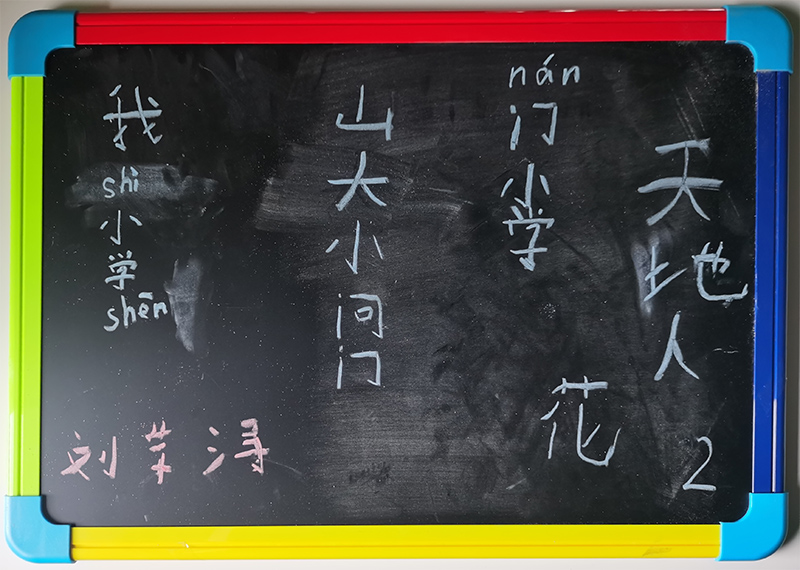 我
shì
小
学
shēn
山
大
小
问
门
nán
门
小
学
天
地
人
花
2
刘 浔